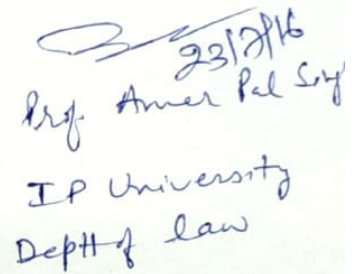 23/7/16
Prof. Amer Pal Sing
IP University
Deptt of law